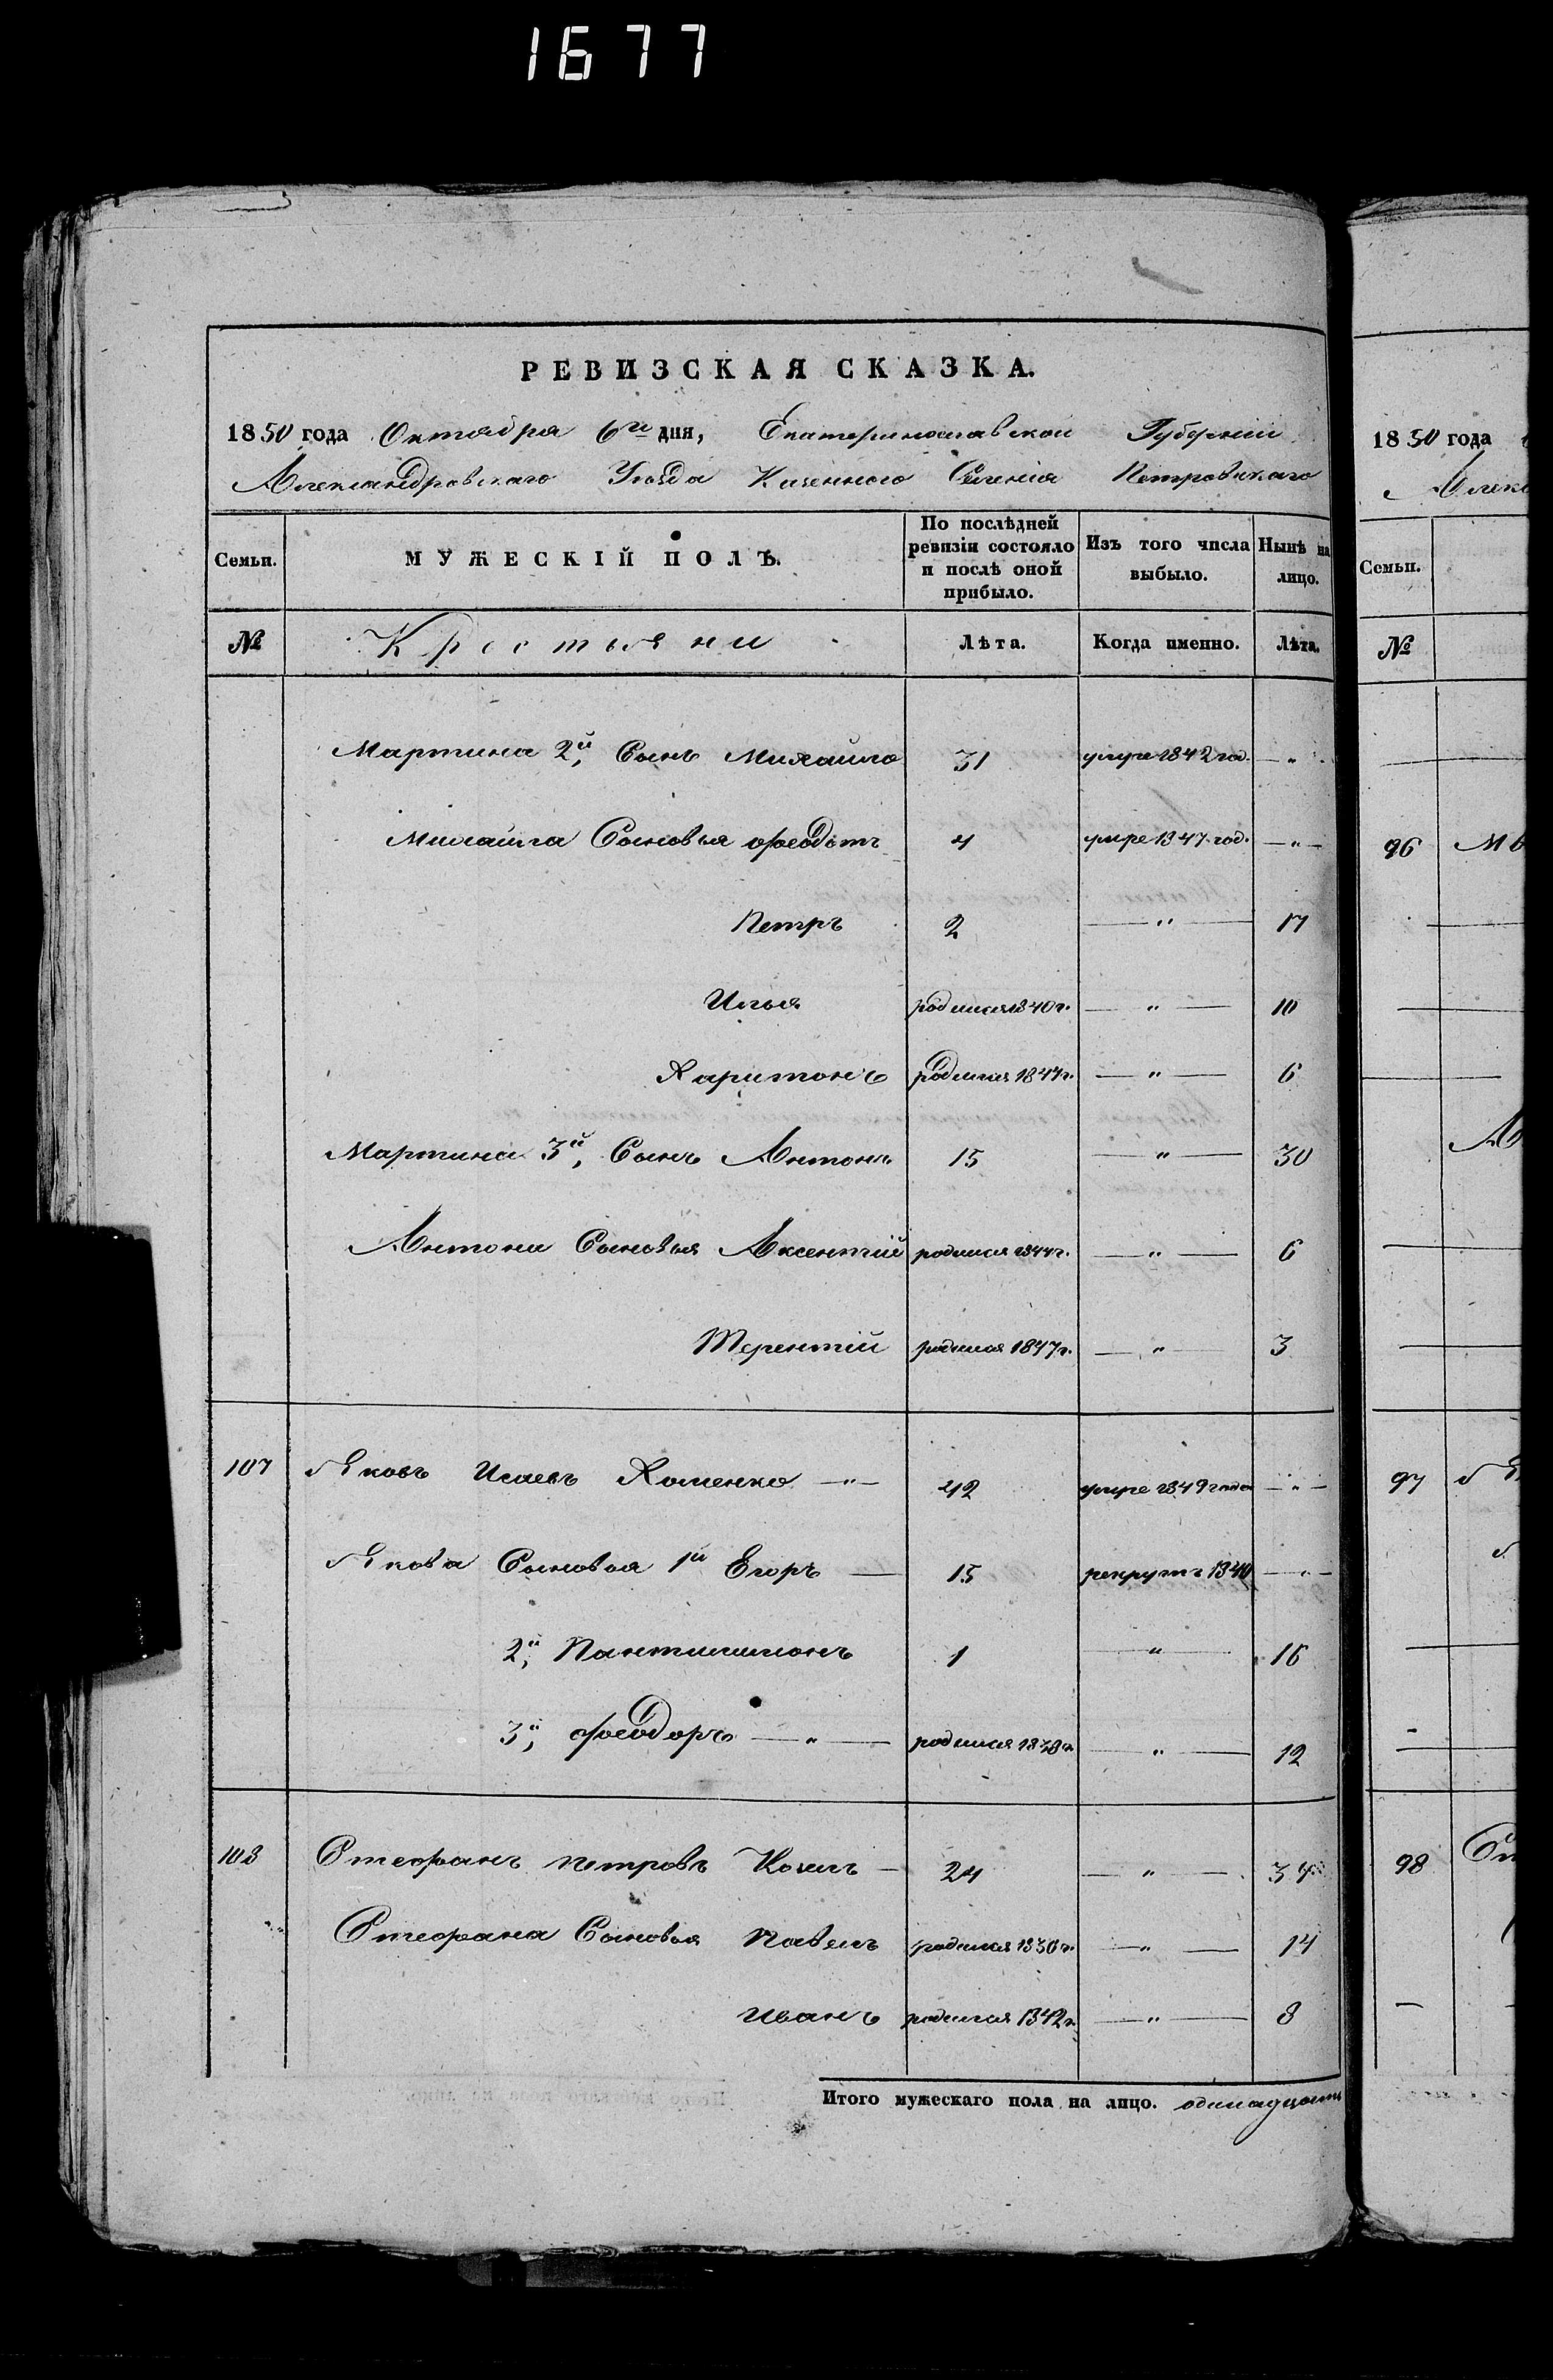 1677
РЕВИЗСКАЯ СКАЗКА.
1850 года Октября 6го дня, Екатеринославской Губерніи
Александровскаго Уѣзда Казенного Селенія Петровскаго
Семьи. МУЖЕСКІЙ ПОЛЪ. По послѣдней ревизіи состояло и послѣ оной прибыло. Изъ того числа выбыло. Нынѣ на лицо.
№ Крестьяни Лѣта. Когда именно. Лѣта.
Мартина 2й, Сынъ Михайло 31 умре 1842 год. — „ —
Михайла Сыновья Феодотъ 4 умре 1847 год. — „ —
Петръ 2 — „ — 17
Илья родился 1840 г. — „ — 10
Харитонъ родился 1844 г. — „ — 6
Мартина 3й, Сынъ Антонъ 15 — „ — 30
Антона Сыновья Аксентій родился 1844 г. — „ — 6
Терентій родился 1847 г. — „ — 3
107 Яковъ Исаевъ Хоменко — „ — 42 умре 1849 года — „ —
Якова Сыновья 1й Егоръ — 15 рекрутъ 1840 — „ —
2й, Пантилимонъ 1 — „ — 16
3й, Феодоръ — „ — родился 1838 г. — „ — 12
108 Стефанъ Петровъ — 24 — „ — 34
Стефана Сыновья Павелъ родился г. — „ — 14
Иванъ родился 1842 г. — „ — 8
Итого мужескаго пола на лицо. одинадцать
1850 года
Алекс
Семьи.
№
96
97
98